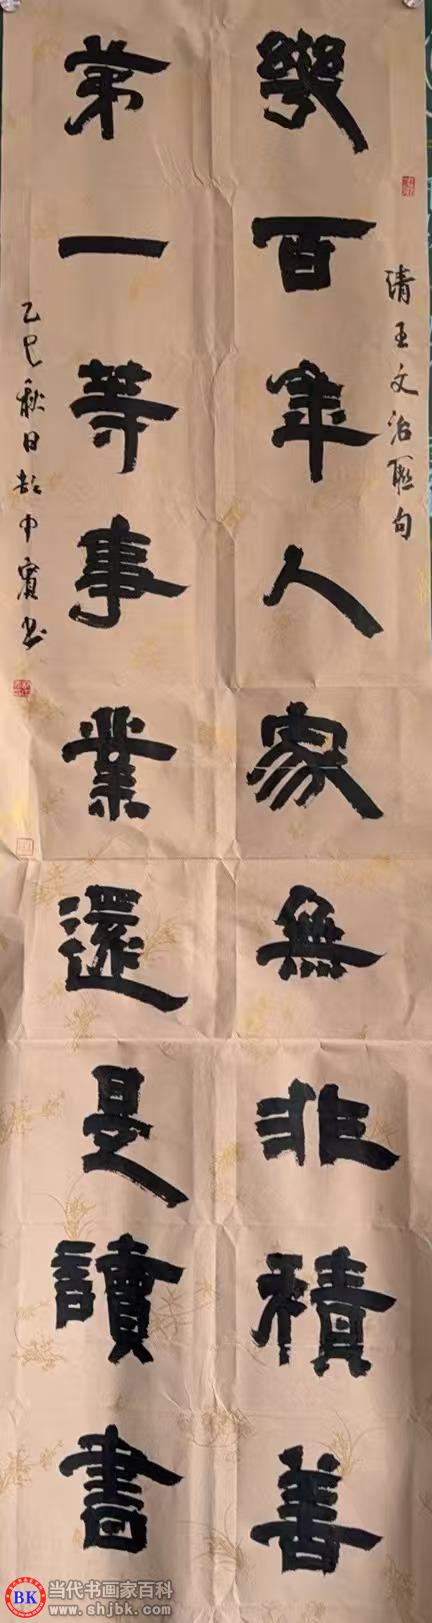 幾百年人家無非積善
第一等事業還是讀書
清王文治联句
乙巳秋日郝中賓书
BK
当代书画家百科
www.shjbk.com